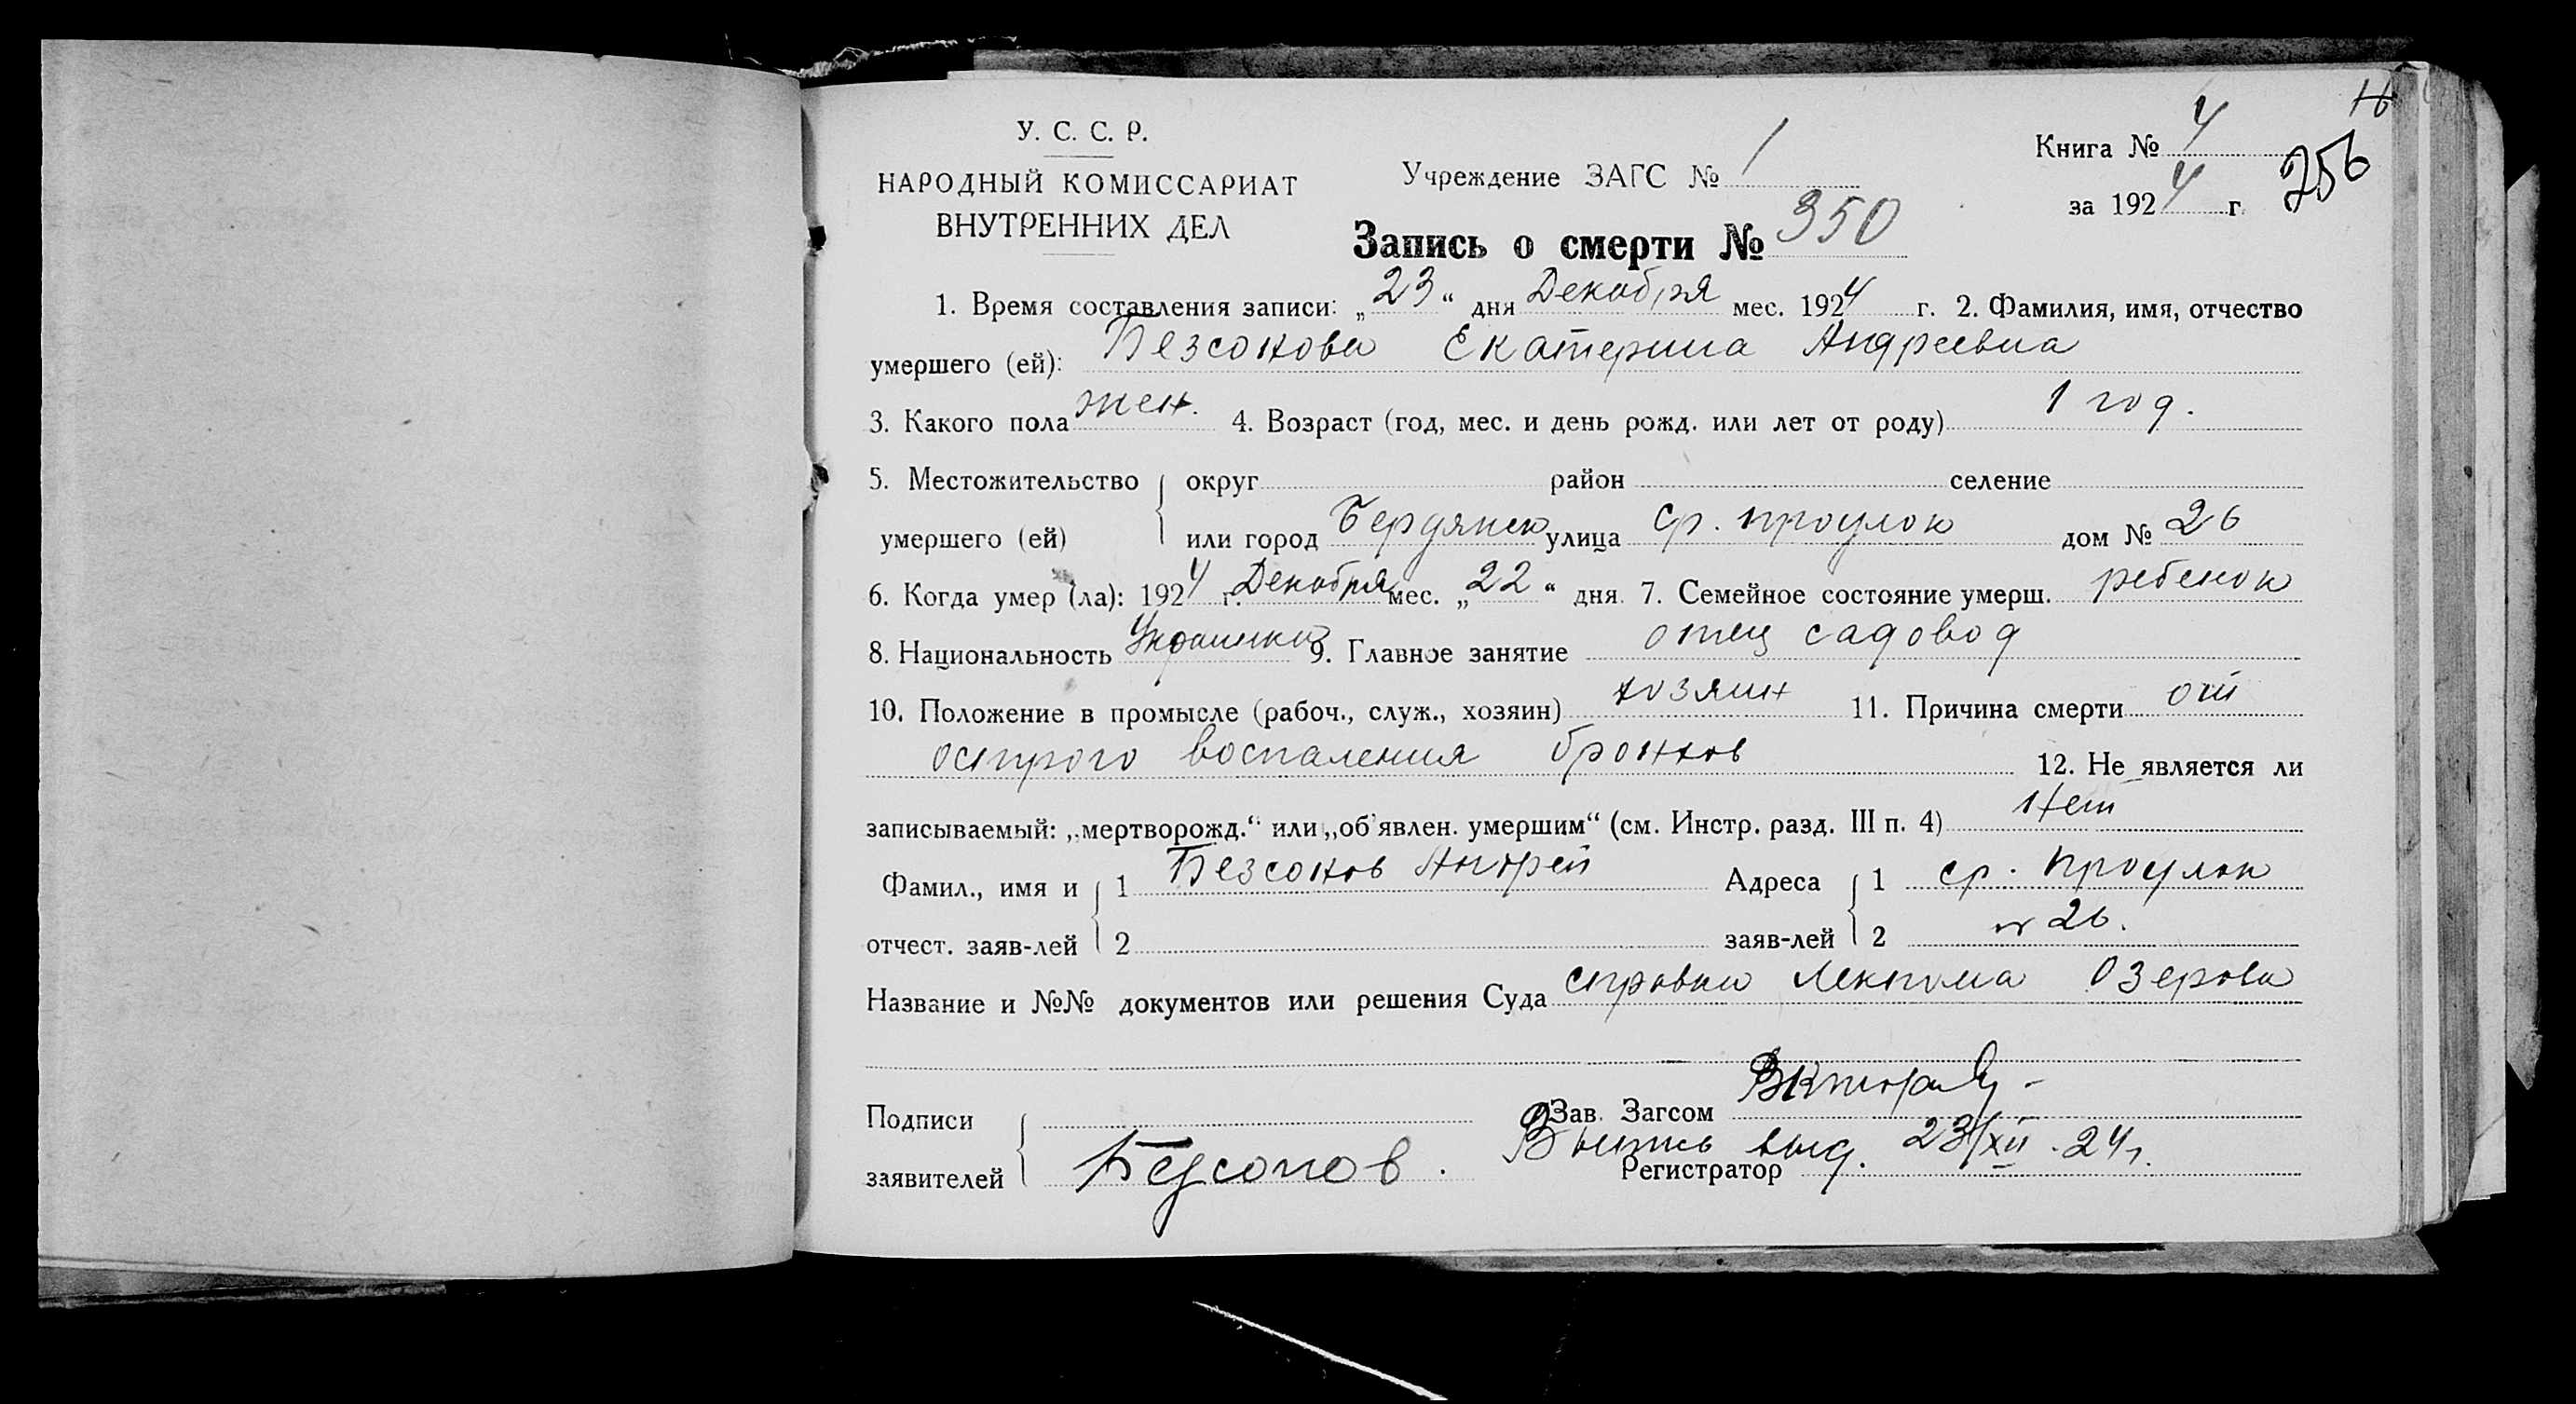 16
У. С. С. Р.
Книга № 4
256
НАРОДНЫЙ КОМИССАРИАТ
Учреждение ЗАГС № 1
за 1924 г.
ВНУТРЕННИХ ДЕЛ
Запись о смерти № 350
1. Время составления записи: „23“ дня Декабря мес. 1924 г. 2. Фамилия, имя, отчество
умершего (ей): Безсокова Екатерина Андреевна
3. Какого пола жен. 4. Возраст (год, мес. и день рожд. или лет от роду) 1 год.
5. Местожительство округ район селение
умершего (ей) или город Бердянск улица Ср. проулок дом № 26
6. Когда умер (ла): 1924 г. Декабря мес. „22“ дня. 7. Семейное состояние умерш. ребенок
8. Национальность Украинка 9. Главное занятие отец садовод
10. Положение в промысле (рабоч., служ., хозяин) хозяин 11. Причина смерти от
острого воспаления бронхов 12. Не является ли
записываемый: „мертворожд.“ или „об'явлен. умершим“ (см. Инстр. разд. III п. 4) Нет
Фамил., имя и 1 Безсоков Андрей Адреса 1 ср. проулок
отчест. заяв-лей 2 заяв-лей 2 № 26.
Название и №№ документов или решения Суда справка Лекпома Озерова
Подписи Зав. Загсом
заявителей Безсоков. Выпись выд. 23/XII-24г.
Регистратор